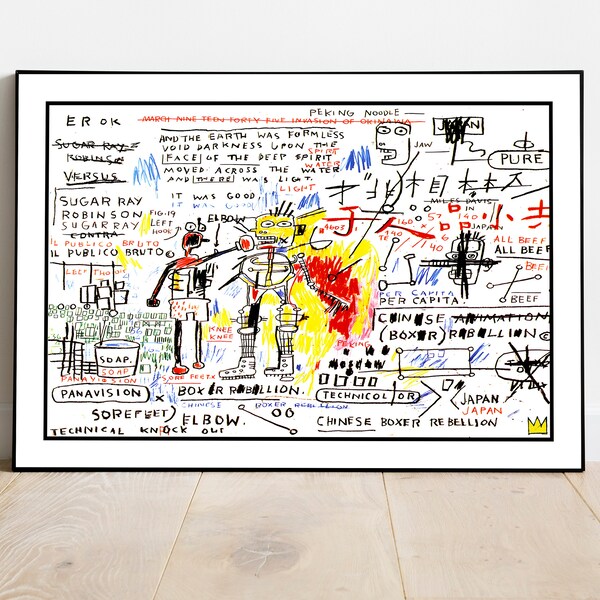 PEKING NOODLE
EROK
MARCH NINE TEEN FORTY FIVE INVASION OF OKINAWA
JAPAN
AND THE EARTH WAS FORMLESS
VOID DARKNESS UPON THE
FACE OF THE DEEP SPIRIT
MOVED ACROSS THE WATER
AND THERE WAS LIGHT.
SPIRIT
WATER
LIGHT
IT WAS GOOD
IT WAS GOOD
JAW
PURE
SUGAR RAY
ROBINSON
VERSUS
MILES DAVIS
IN
JAPAN
SUGAR RAY
ROBINSON
SUGAR RAY
CONTRA
FIG.19
LEFT
HOOK
ELBOW
IL PUBLICO BRUTO
IL PUBLICO BRUTO©
4603
人品小
160
57
140
TE40
1140
ALL BEEF
ALL BEEF
BEEF
BEEF
PER CAPITA
PER CAPITA
CHINESE ANIMATION
(BOXER) REBELLION©
KNEE
KNEE
PEKING
SOAP.
SOAP
PANAVISION
SORE FEET X
PANAVISION
X
BOXER REBELLION.
TECHNICOLOR
CHINESE BOXER REBELLION
JAPAN
JAPAN
SOREFEET)
ELBOW.
CHINESE BOXER REBELLION
TECHNICAL KNOCK OUT